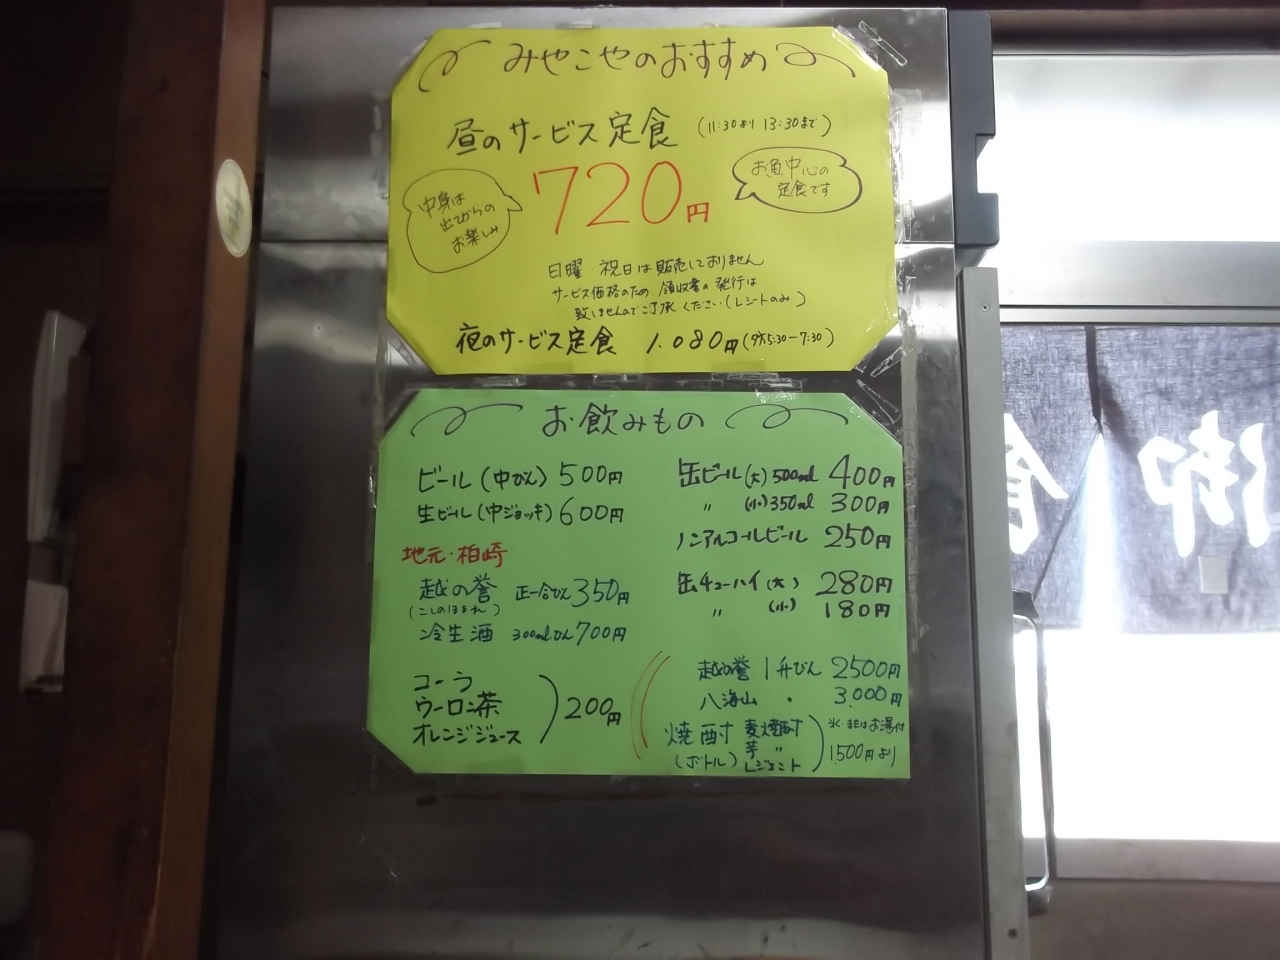 みやこやのおすすめ
昼のサービス定食 (11:30より 13:30まで)
720円
中身は
出てからの
お楽しみ
お魚中心の
定食です
日曜・祝日は販売しておりません
サービス価格のため 領収書の発行は
致しませんのでご了承ください(レシートのみ)
夜のサービス定食 1.080円(夕方5:30-7:30)
お飲みもの
ビール(中びん) 500円
生ビール(中ジョッキ) 600円
地元・柏崎
越の誉 正一合びん 350円
(こしのほまれ)
冷生酒 300mlびん 700円
コーラ
ウーロン茶
オレンジジュース
200円
缶ビール(大) 500ml 400円
〃 (小) 350ml 300円
ノンアルコールビール 250円
缶チューハイ(大) 280円
〃 (小) 180円
越の誉 1升びん 2500円
八海山 〃 3.000円
焼酎 麦焼酎
(ボトル) 芋 〃
レジェント
氷・またはお湯付
1500円より
御
食